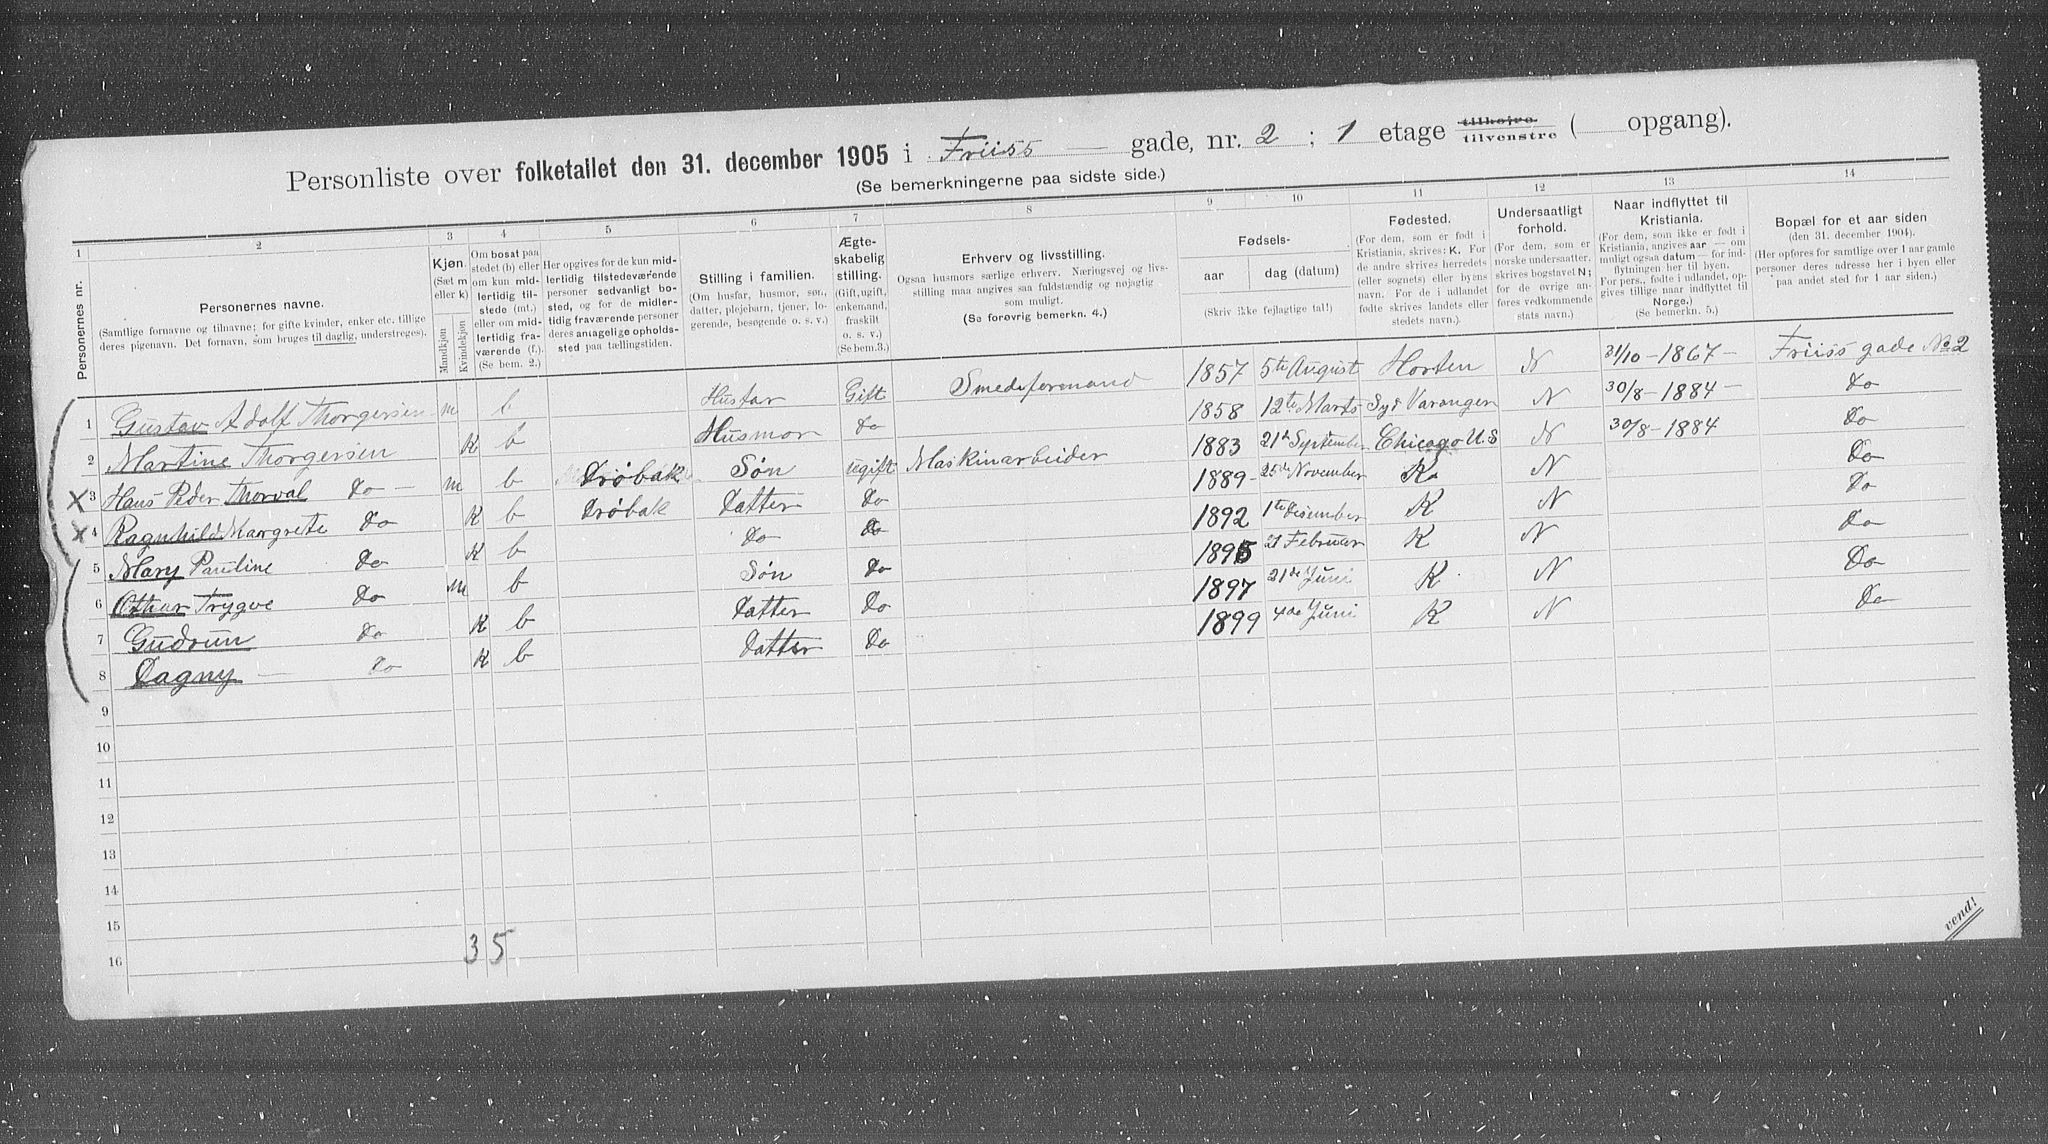 Personliste over folketallet den 31. december 1905 i Friiss gade, nr. 2 ; 1 etage tilhøire tilvenstre ( opgang).
(Se bemerkningerne paa sidste side.)
1 2 3 4 5 6 7 8 9 10 11 12 13 14
Personernes nr.
Personernes navne.
(Samtlige fornavne og tilnavne; for gifte kvinder, enker etc. tillige deres pigenavn. Det fornavn, som bruges til daglig, understreges).
Kjøn.
(Sæt m eller k)
Mandkjøn Kvindekjøn
Om bosat paa stedet (b) eller om kun midlertidig tilstede (mt.) eller om midlertidig fraværende (f.). (Se bem. 2.)
Her opgives for de kun midlertidig tilstedeværende personer sedvanligt bosted, og for de midlertidig fraværende personer deres antagelige opholdssted paa tællingstiden.
Stilling i familien.
(Om husfar, husmor, søn, datter, plejebarn, tjener, logerende, besøgende o. s. v.)
Ægteskabelig stilling.
(Gift, ugift, enkemand, fraskilt o. s. v.) (Se bem. 3.)
Erhverv og livsstilling.
Ogsaa husmors særlige erhverv. Næringsvej og livsstilling maa angives saa fuldstændig og nøjagtig som muligt.
(Se forøvrig bemerkn. 4.)
Fødsels-
aar dag (datum)
(Skriv ikke fejlagtige tal!)
Fødested.
(For dem, som er født i Kristiania, skrives: K. For de andre skrives herredets (eller sognets) eller byens navn. For de i udlandet fødte skrives landets eller stedets navn.)
Undersaatligt forhold.
(For dem, som er norske undersaatter, skrives bogstavet N; for de øvrige anføres vedkommende stats navn.)
Naar indflyttet til Kristiania.
(For dem, som ikke er født i Kristiania, angives aar — om muligt ogsaa datum — for indflytningen her til byen. For pers., fødte i udlandet, opgives tillige naar indflyttet til Norge.)
(Se bemerkn. 5.)
Bopæl for et aar siden
(den 31. december 1904).
(Her opføres for samtlige over 1 aar gamle personer deres adresse her i byen eller paa andet sted for 1 aar siden.)
1 Gustav Adolf Thorgersen m b Husfar Gift Smedsformand 1857 5te August Horten N 31/10-1867- Friiss gade No 2
2 Martine Thorgersen K b Husmor Do 1858 12te Marts Syd Varanger N 30/8-1884- Do
X 3 Hans Peder Thorval Do m b Drøbak Søn ugift Maskinarbeider 1883 21de September Chicago U.S N 30/8-1884 Do
X 4 Ragnhild Margrete Do K b Drøbak Datter Do 1889- 25de November K N Do
5 Mary Pauline Do K b Do Do 1892 1te Desember K N Do
6 Othar Trygve Do m b Søn Do 1895 21 Februar K N Do
7 Gudrun Do K b Datter Do 1897 21de Juni K N Do
8 Dagny Do K b Datter Do 1899 4de Juni K N Do
9
10
11
12
13
14
15
16
3 5
vend!